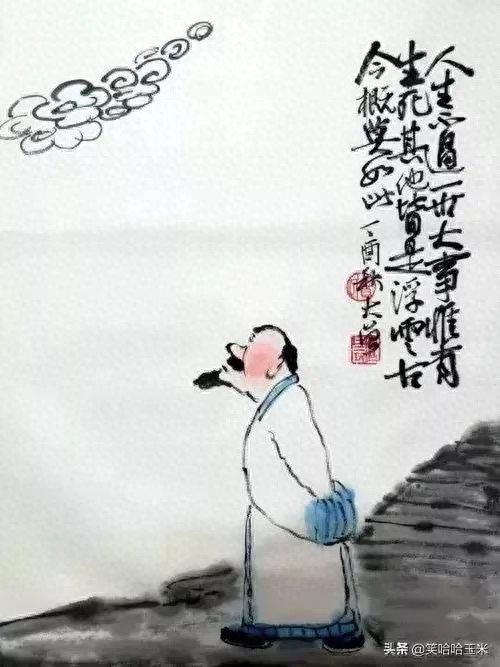 人生不过一世大事惟有
生死其他皆是浮云古
今概莫如此 丁酉秋大
头条 @笑哈哈玉米